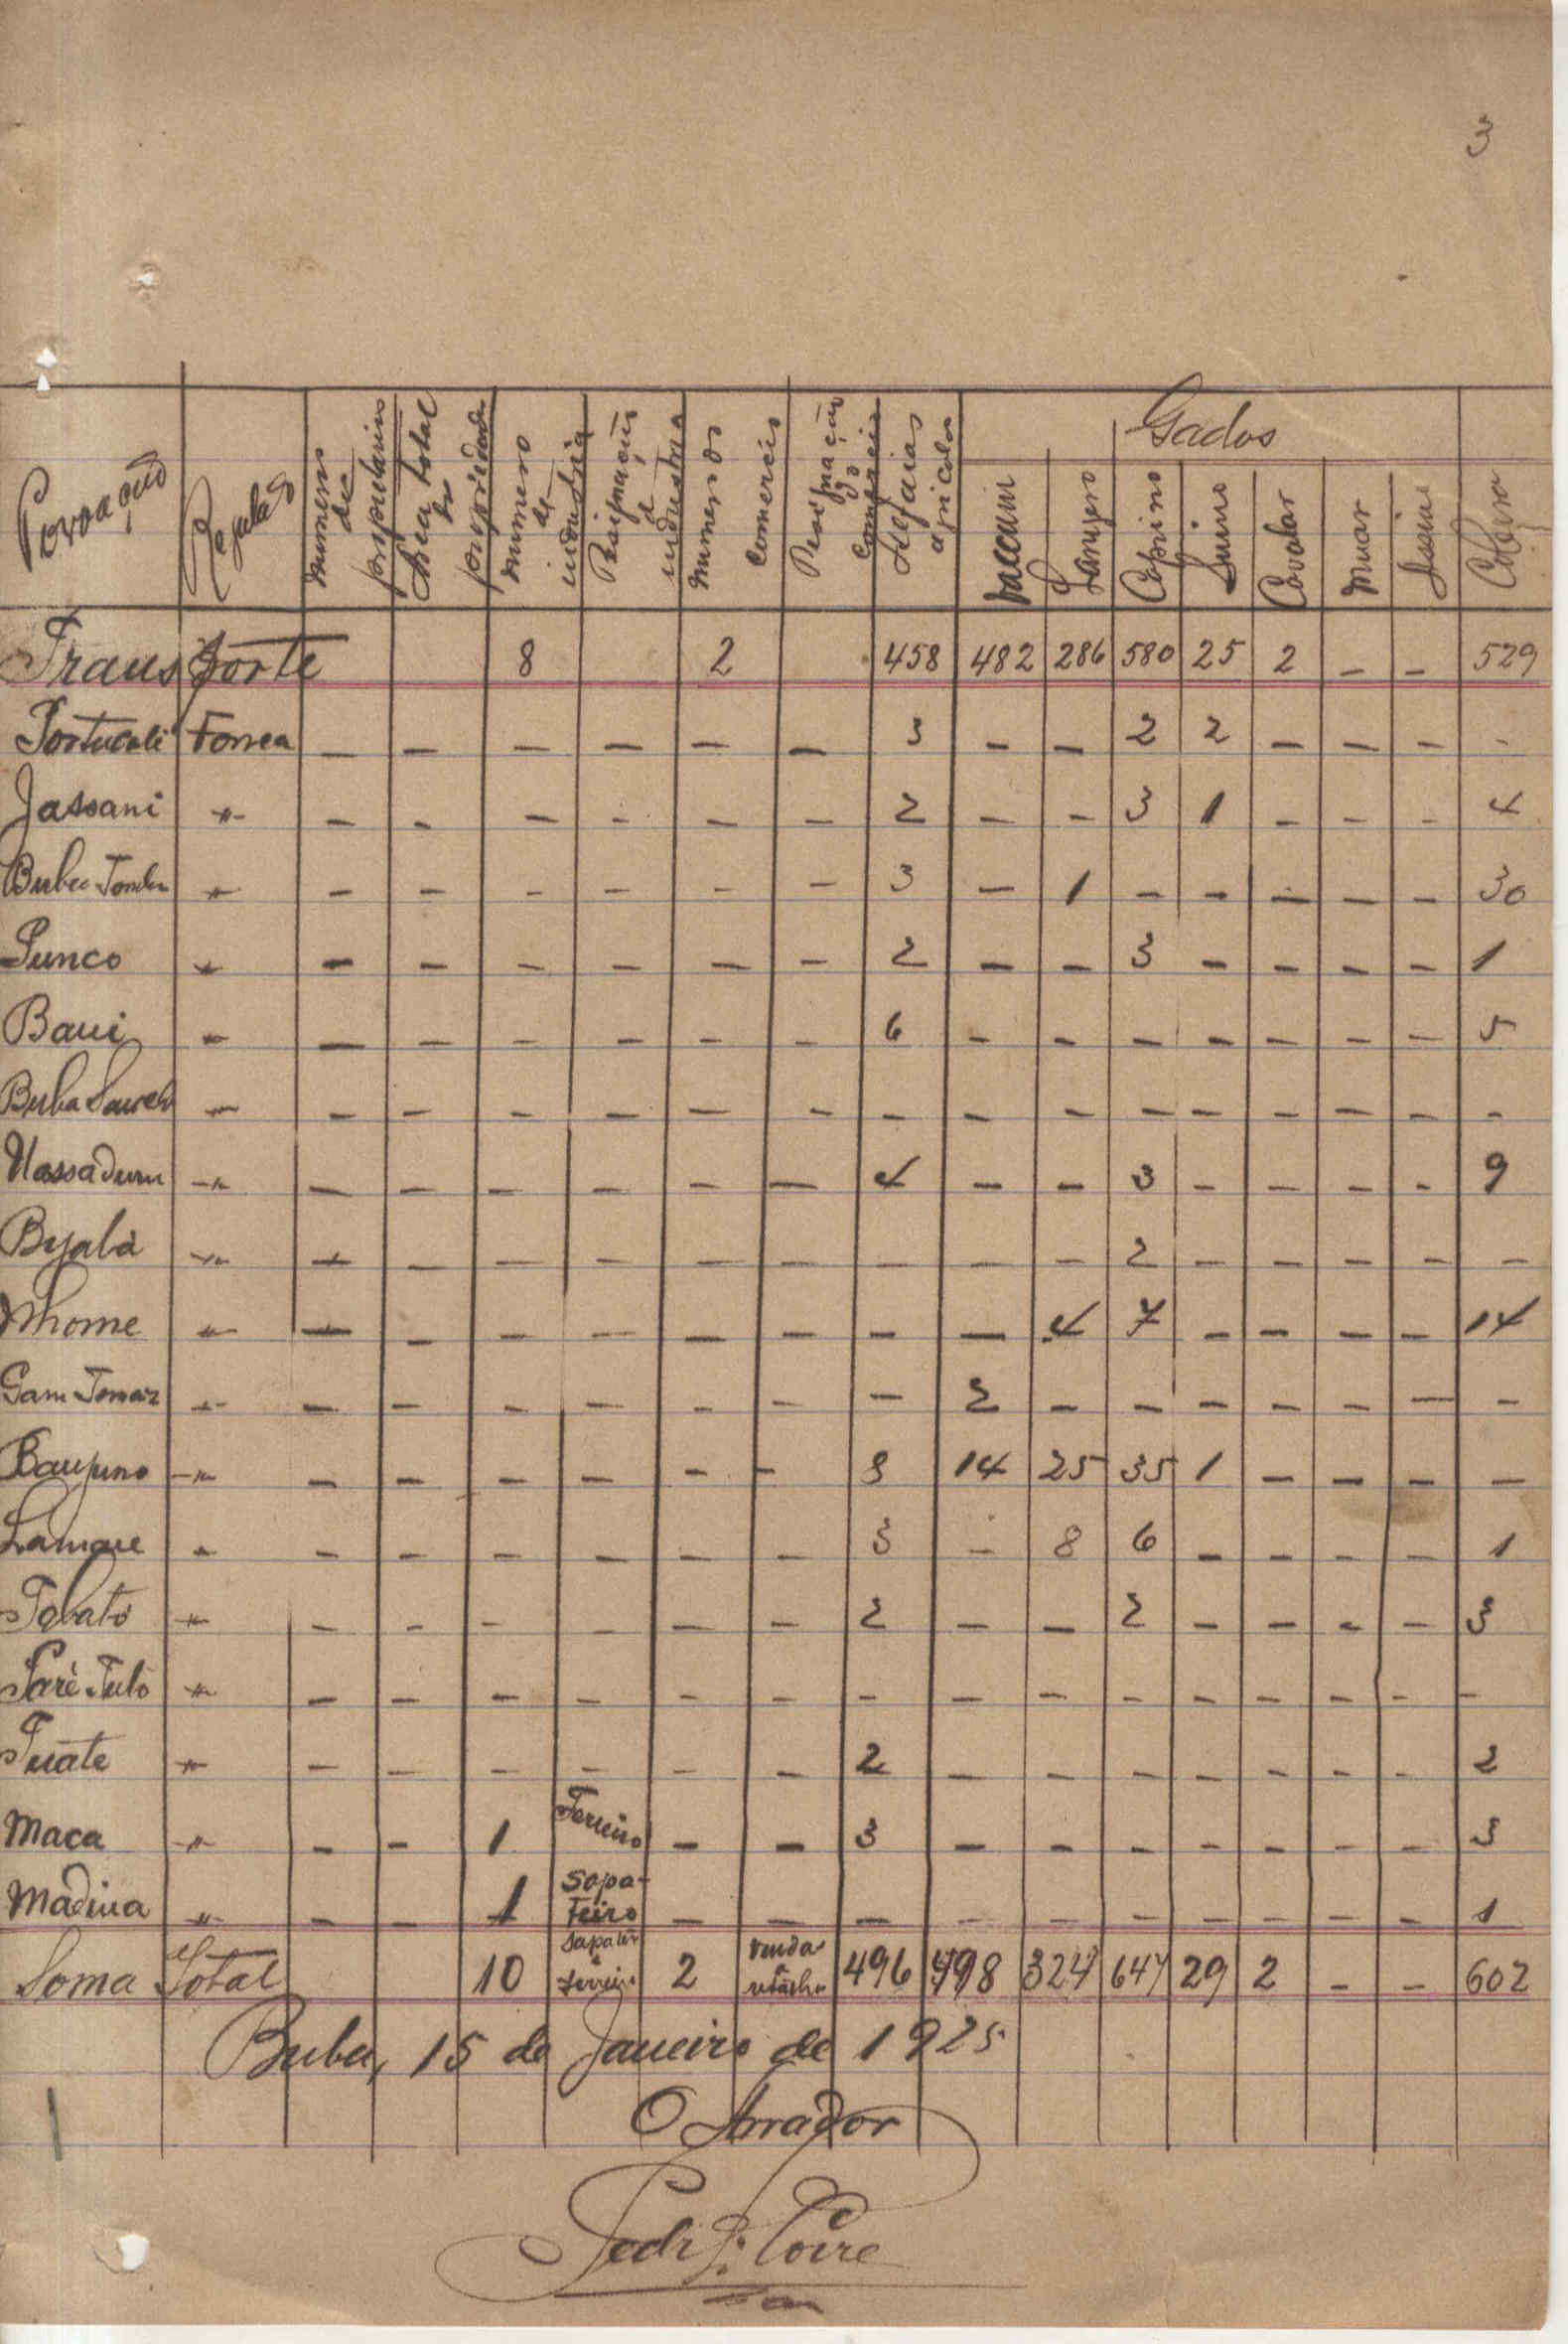 3
Povoação | Regulado | numeros dos proprietarios | Area total da propriedade | numero de industria | Designação da industria | numero do comercio | Designação do comercio | Alfaias agricolas | Gados | Colmeia
vaccum | Lanigero | Caprino | Suino | Cavalar | muar | Assino
Transporte 8 2 458 482 286 580 25 2 – – 529
Portucali Forrea – – – – – – 3 – – 2 2 – – – -
Jassani -"- – – – – – – 2 – – 3 1 – – – 4
Buba Tomba -"- – – – – – – 3 – 1 – – – – – 30
Sunco -"- – – – – – – 2 – – 3 – – – – 1
Baui -"- – – – – – – 6 – – – – – – – 5
Buba -"- – – – – – – – – – – – – – – -
Nassaduru -"- – – – – – – 4 – – 3 – – – – 9
Byalá -"- – – – – – – – – – 2 – – – – –
Nhome -"- – – – – – – – – 4 7 – – – – 14
Gam Tomaz -"- – – – – – – – 2 – – – – – – –
-"- – – – – – – 8 14 25 35 1 – – – –
Lamane -"- – – – – – – 3 – 8 6 – – – – 1
Tabató -"- – – – – – – 2 – – 2 – – – – 3
Saré Tuto -"- – – – – – – – – – – – – – – –
Tuate -"- – – – – – – 2 – – – – – – – 2
Maca -"- – – 1 Ferreiro – – 3 – – – – – – – 3
Madina -"- – – 1 Sapa-
teiro – – – – – – – – – – 1
Soma Total 10 Sapateir e ferreiro 2 venda a retalho 496 498 324 647 29 2 – – 602
Buba, 15 de Janeiro de 1925
O Arrador